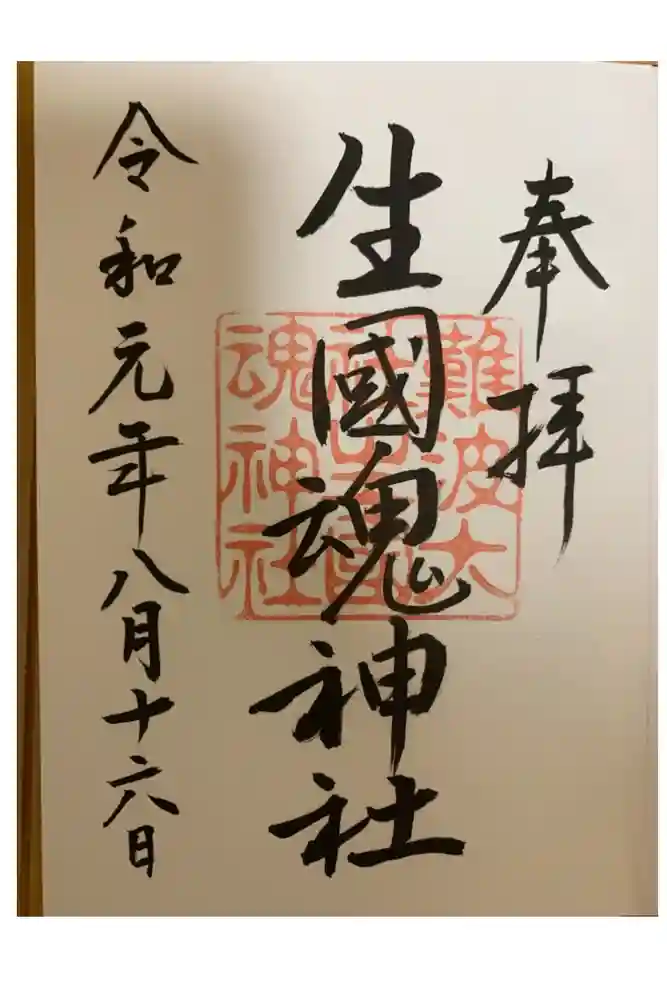 奉拝
生國魂神社
令和元年八月十六日
難波大
魂神社